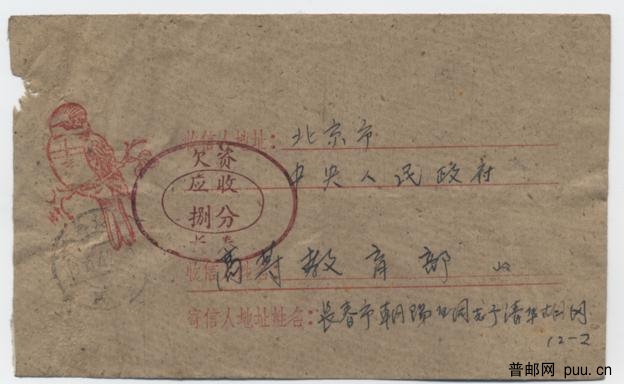 收信人地址：北京市
中央人民政府
欠资
应收
捌分
长春
收信
高等教育部
寄信人地址姓名：长春市朝阳
12-2
普邮网 puu.cn